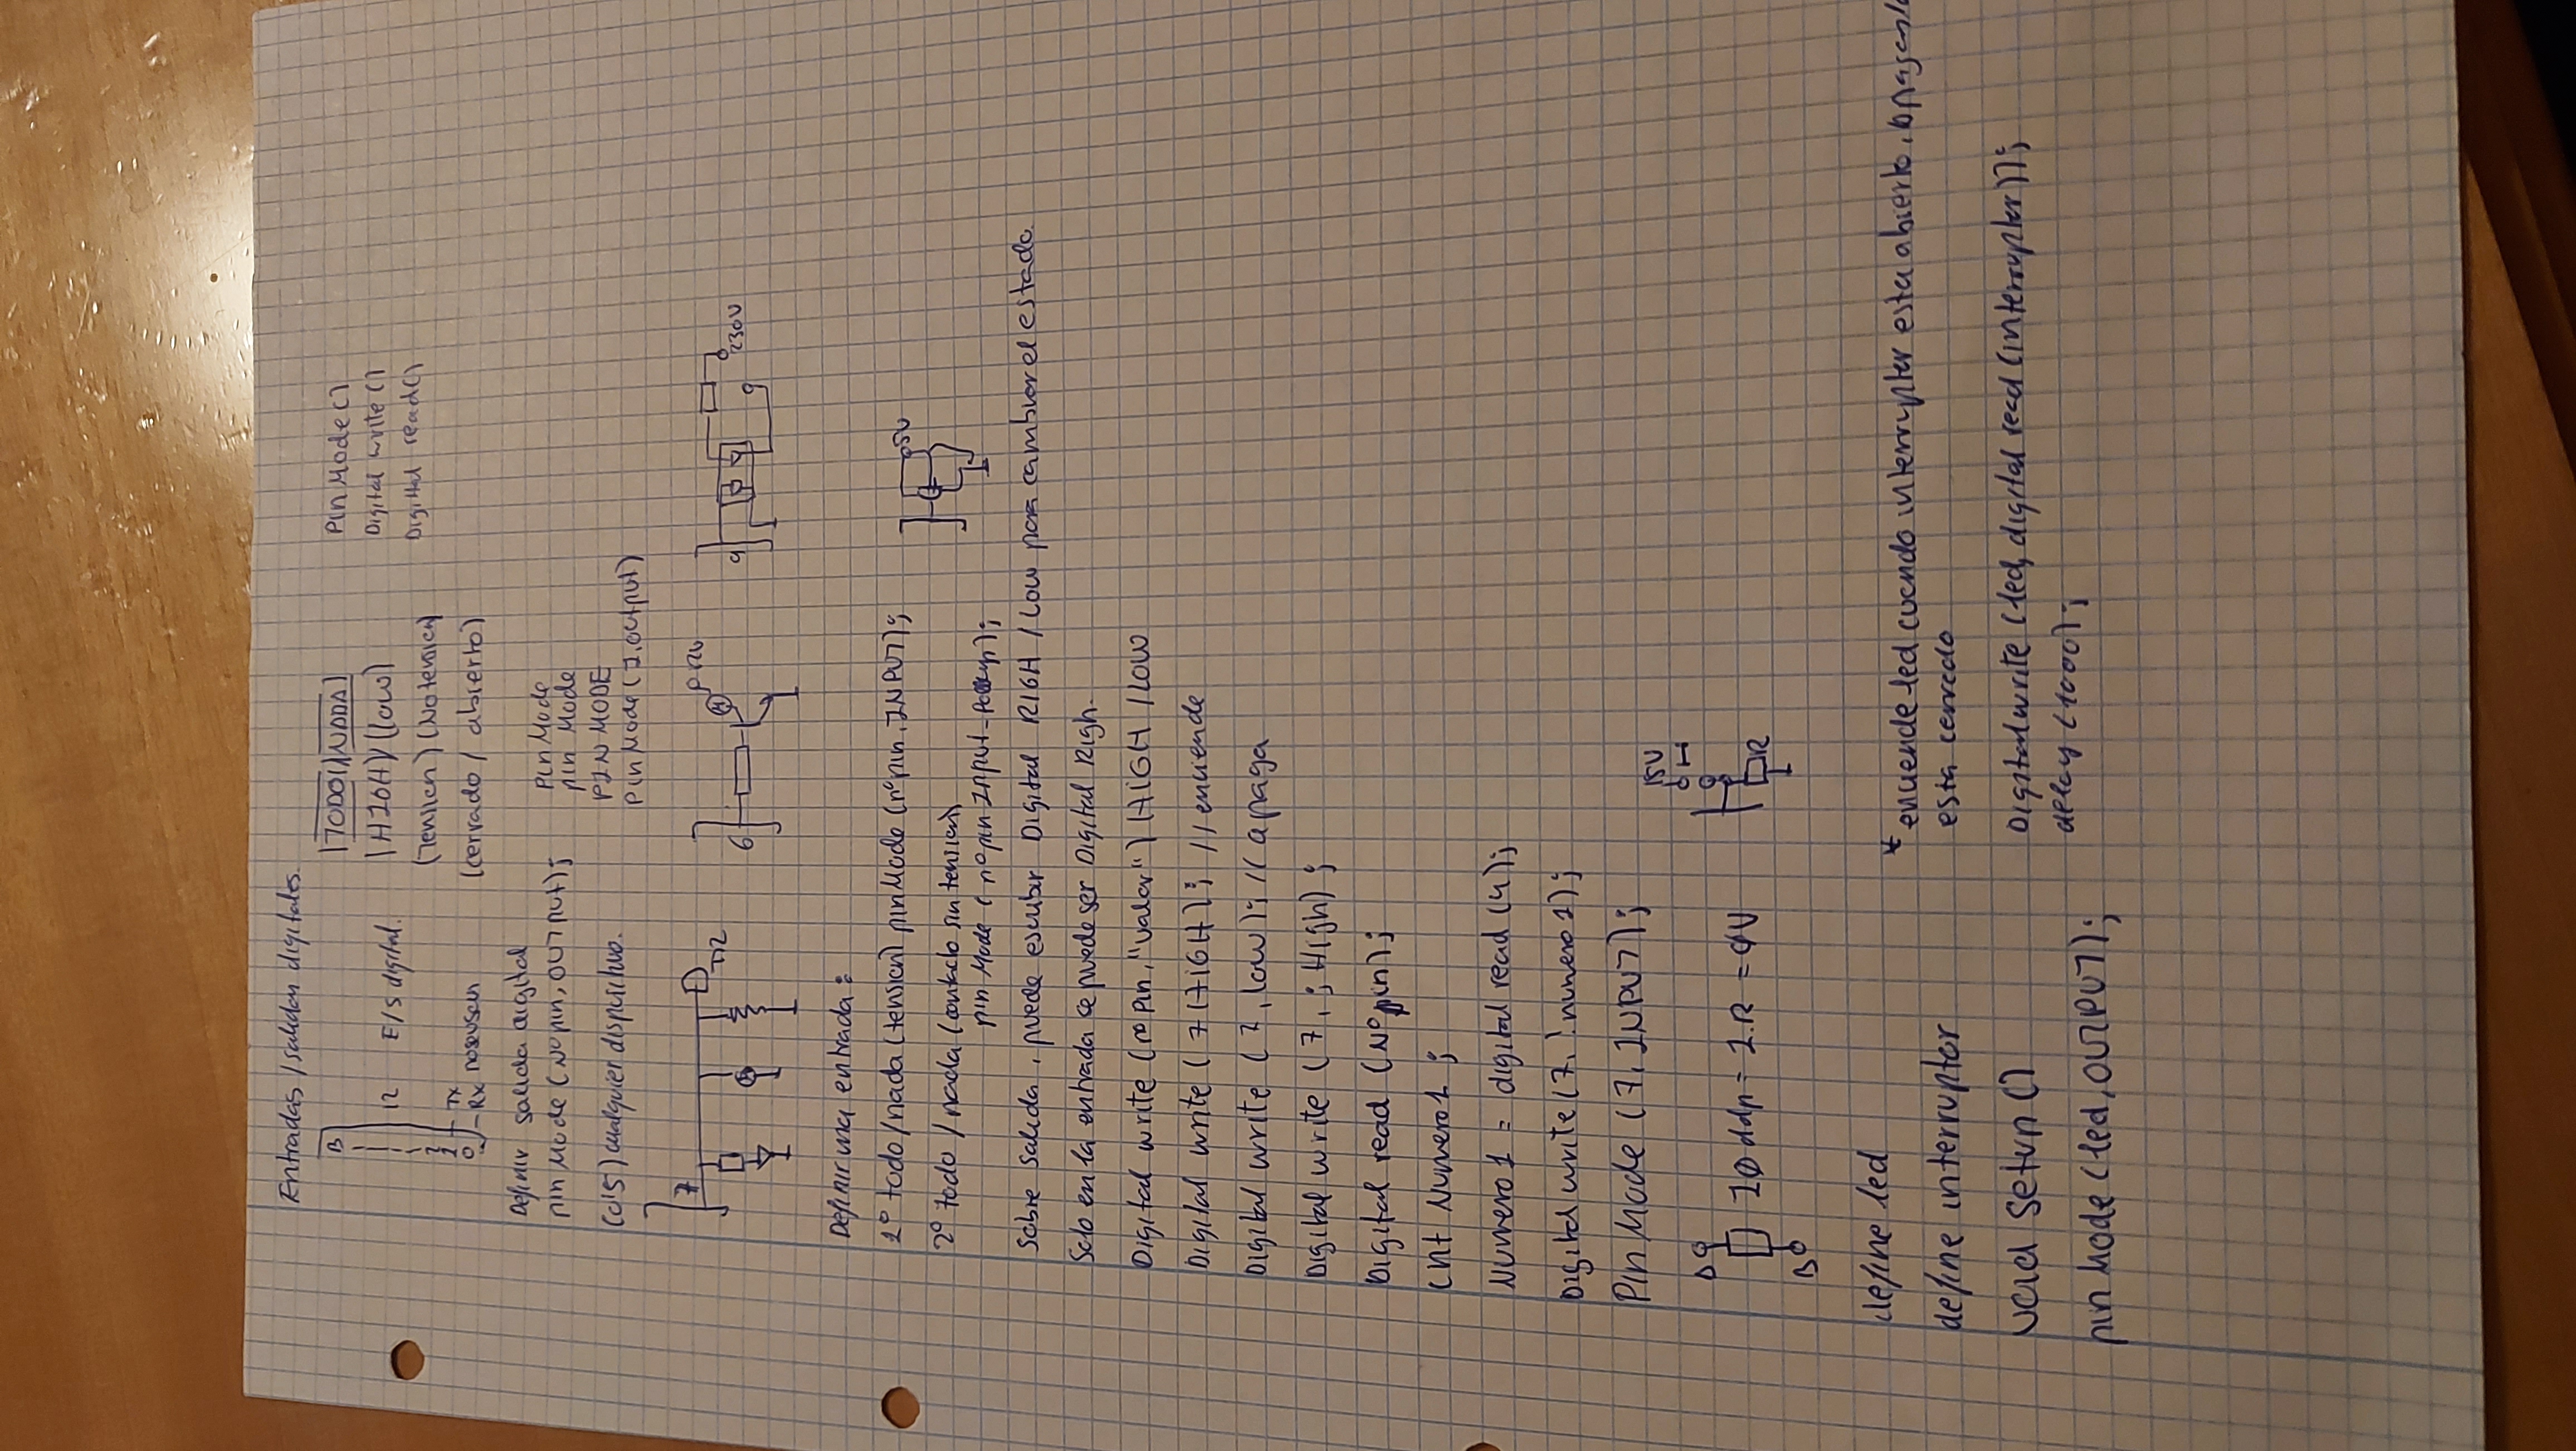 Entradas / salidas digitales.
13
12 E/s digital.
2
1 TX
0 - RX no se usan
|TODO| |NADA|
|HIGH| (low)
(Tensión) (No tensión)
(cerrado / abierto)
Pin Mode ()
Digital write ()
Digital read ()
Definir salida digital
pin Mode (Nº pin, OUTPUT);
Pin Mode
pin Mode
PIN MODE
Pin Mode (7, output)
(0'5) cualquier dispositivo.
7
6
9
230V
Definir una entrada:
1º todo / nada (tensión) pin Mode (nº pin, INPUT);
5V
2º todo / nada (contacto sin tensión)
pin Mode (nº pin Input-
Sobre salida, puede escribir Digital RIGH / low para cambiar el estado
Solo en la entrada se puede ser Digital Righ.
Digital write (nº pin, "valor") HIGH / LOW
Digital write (7 HIGH); // enciende
Digital write (7, low); // apaga
Digital write (7, ; High);
Digital read (Nº pin);
int Numero1;
Numero1 = digital read (4);
Digital write (7, ! numero1);
Pin Mode (7, INPUT);
I0 ddp = I.R = 0V
R
define led
define interruptor
void Setup ()
pin Mode (led, OUTPUT);
* enciende led cuando interruptor esta abierto,
esta cerrado
Digital write (led, digital read (interruptor));
delay (1000);